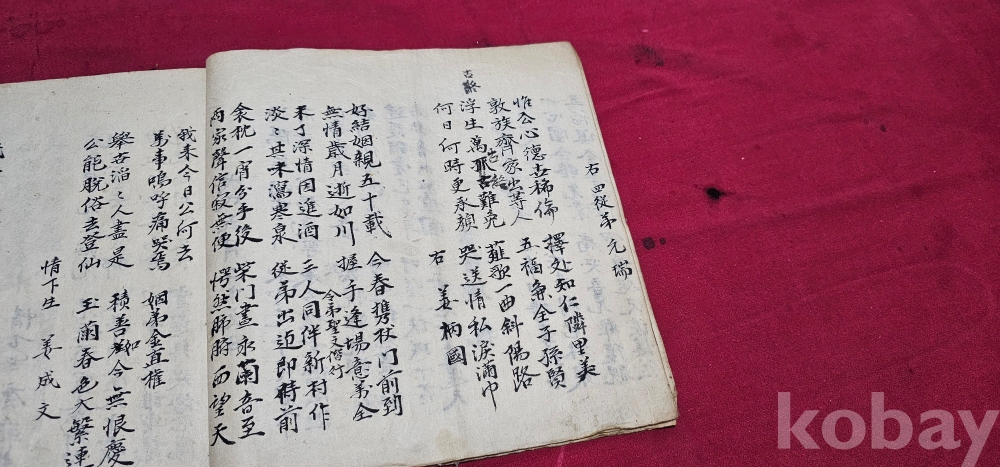 右 四從弟 元瑞
惟公心德世稀倫 擇处知仁隣里美
敦族齊家出等人 五福兼全子孫賢
浮生萬 難 薤歌一曲斜陽路
何日何時更承顔 哭送情私淚滿巾
右 姜柄國
好結姻親五十載 今春携杖門前到
無情歲月逝如川 握手逢場意萬全
令弟聖文偕行
未了深情因進酒 三人同伴新村作
淡〻其味瀉寒泉 從弟出迎即時前
衾枕一宵分手後 柴門晝永蘭音至
两家聲信寂無便 愕然肺腑西望天
我来今日公何去
萬事嗚呼痛哭焉 姻弟金直権
舉世滔〻人盡是 積善如今無恨慶
公能脫俗去登仙 玉蘭春色大繁連
情下生 姜成文
kobay